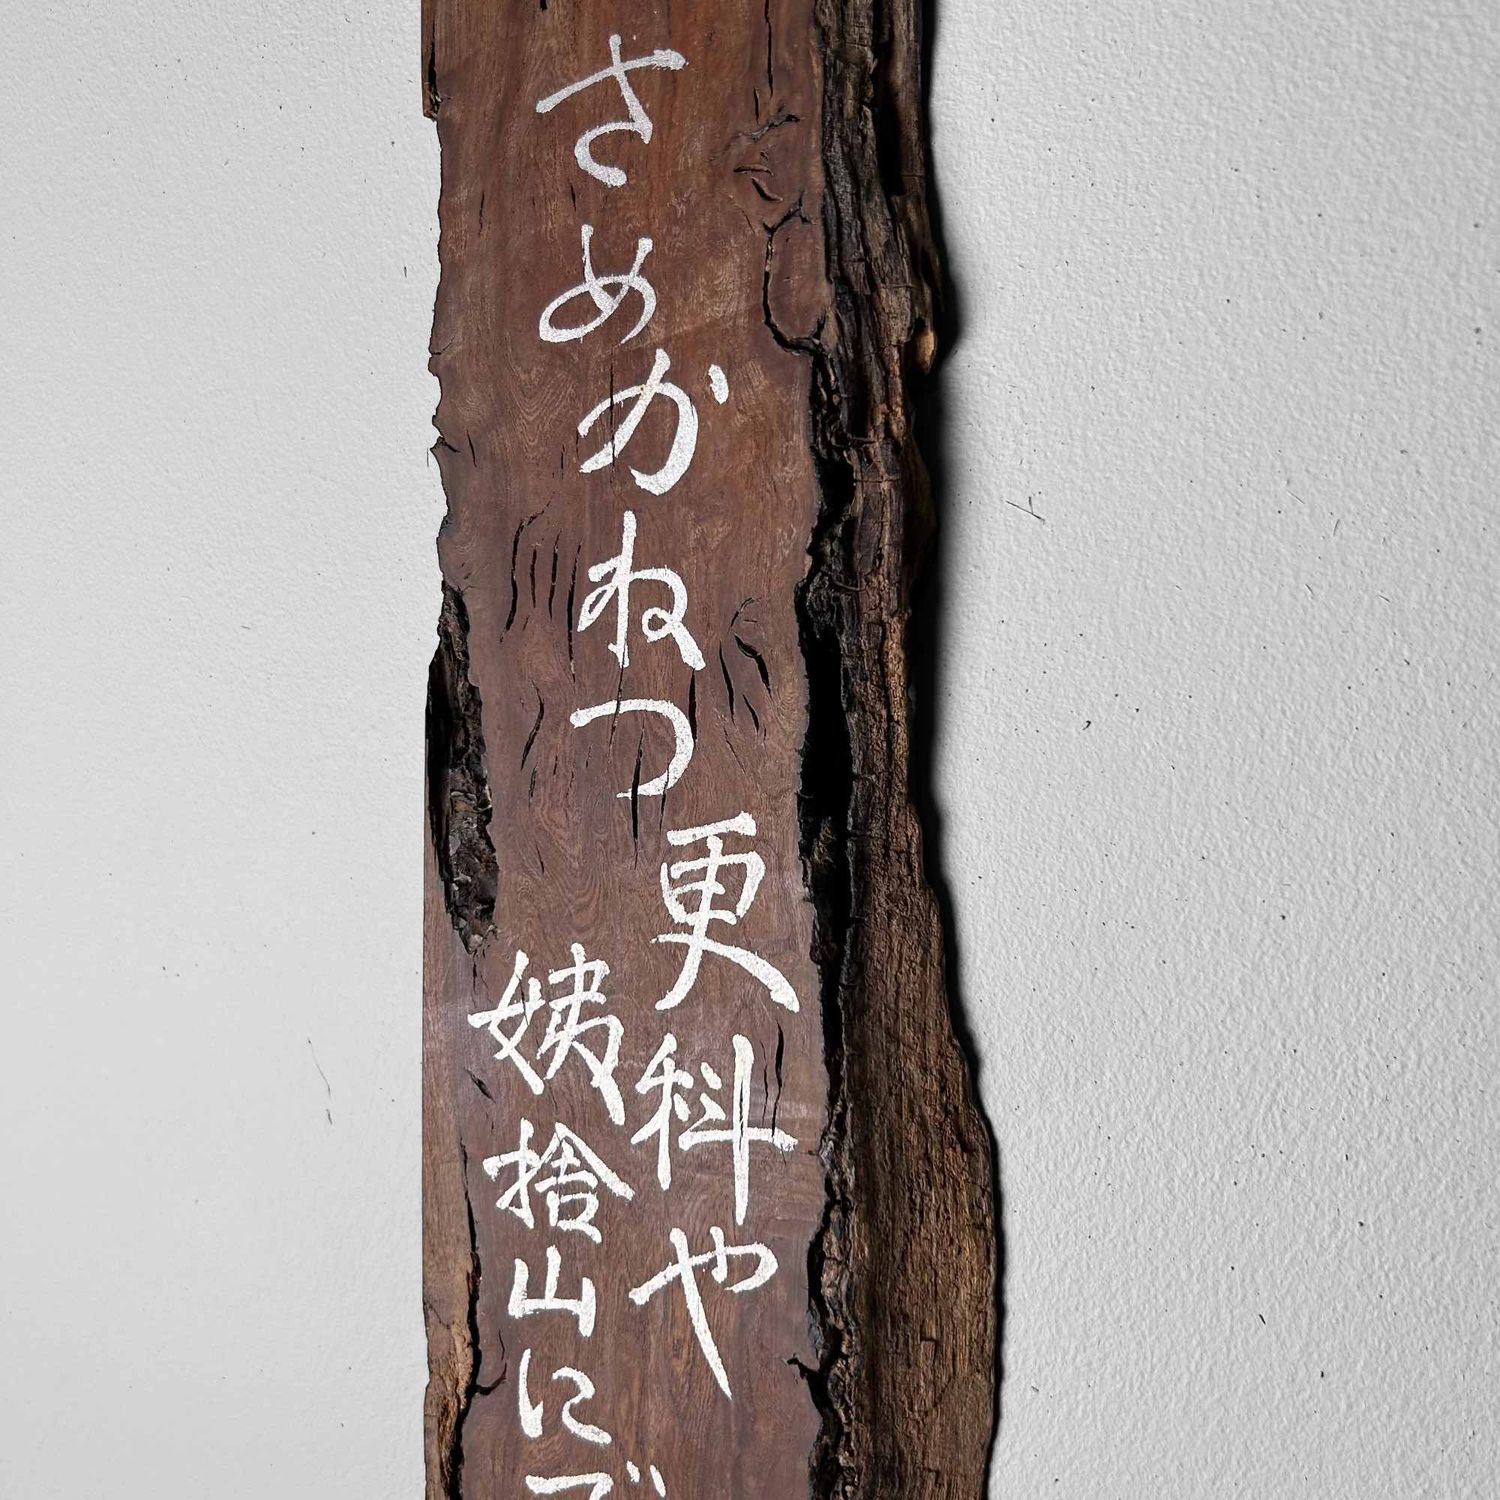 さめかねつ
更科や
姨捨山にで